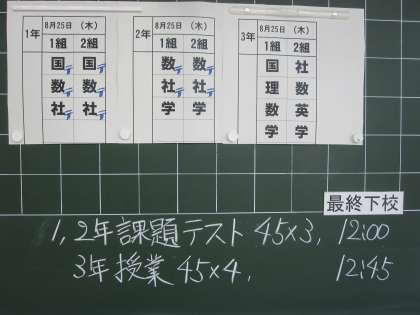 1年 8月25日（木）
1組 2組
国 国
数 数
社 社
2年 8月25日（木）
1組 2組
数 数
社 社
学 学
3年 8月25日（木）
1組 2組
国 社
理 数
数 英
学 学
最終下校
1,2年課題テスト 45×3, 12:00
3年授業 45×4, 12:45